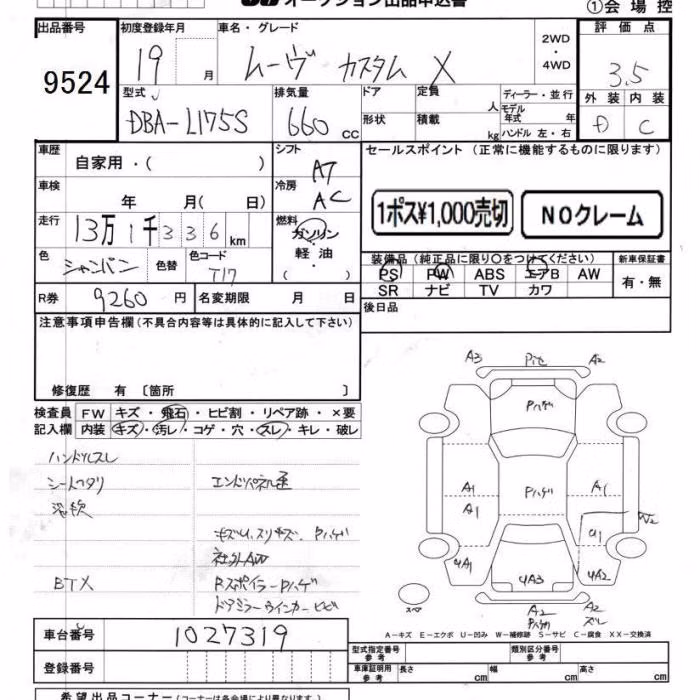 オークション出品申込書
①会場控
出品番号 初度登録年月 車名・グレード 2WD・4WD 評価点
9524 19 月 ムーヴ カスタム X 3.5
型式 排気量 ドア 定員 人 ディーラー・並行 外装 内装
DBA-L175S 660 cc 形状 積載 kg モデル年式 年 ハンドル 左・右 D C
車歴 自家用・( ) シフト AT セールスポイント (正常に機能するものに限ります)
車検 年 月( 日) 冷房 AC 1ポス¥1,000売切 NOクレーム
走行 13万1千336km 燃料 ガソリン・軽油・( )
色 シャンパン 色替 色コード T17 装備品(純正品に限り○をつけてください) 新車保証書
PS PW ABS エアB AW 有・無
SR ナビ TV カワ
R券 9260円 名変期限 月 日 後日品
注意事項申告欄(不具合内容等は具体的に記入して下さい)
修復歴 有 〔箇所 〕
検査員 FW キズ・飛石・ヒビ割・リペア跡・×要
記入欄 内装 キズ・汚レ・コゲ・穴・スレ・キレ・破レ
ハンドルスレ
シートヘタリ エンドパネル歪
キズU.スリキズ.Pハゲ
社外AW
BTX Rスポイラー Pハゲ
ドアミラーウインカーヒビ
A3 P飛 A2
Pハゲ
A1 Pハゲ A1
A1 U1 W2
UA1 UA3 UA2
スペア A2 Pハゲ A2 ズレ
A-キズ E-エクボ U-凹み W-補修跡 S-サビ C-腐食 XX-交換済
車台番号 1027319 型式指定番号 参考 類別区分番号 参考
登録番号 車庫証明用 参考 長さ cm 幅 cm 高さ cm
希望出品コーナー(コーナーは各会場により異なります。)